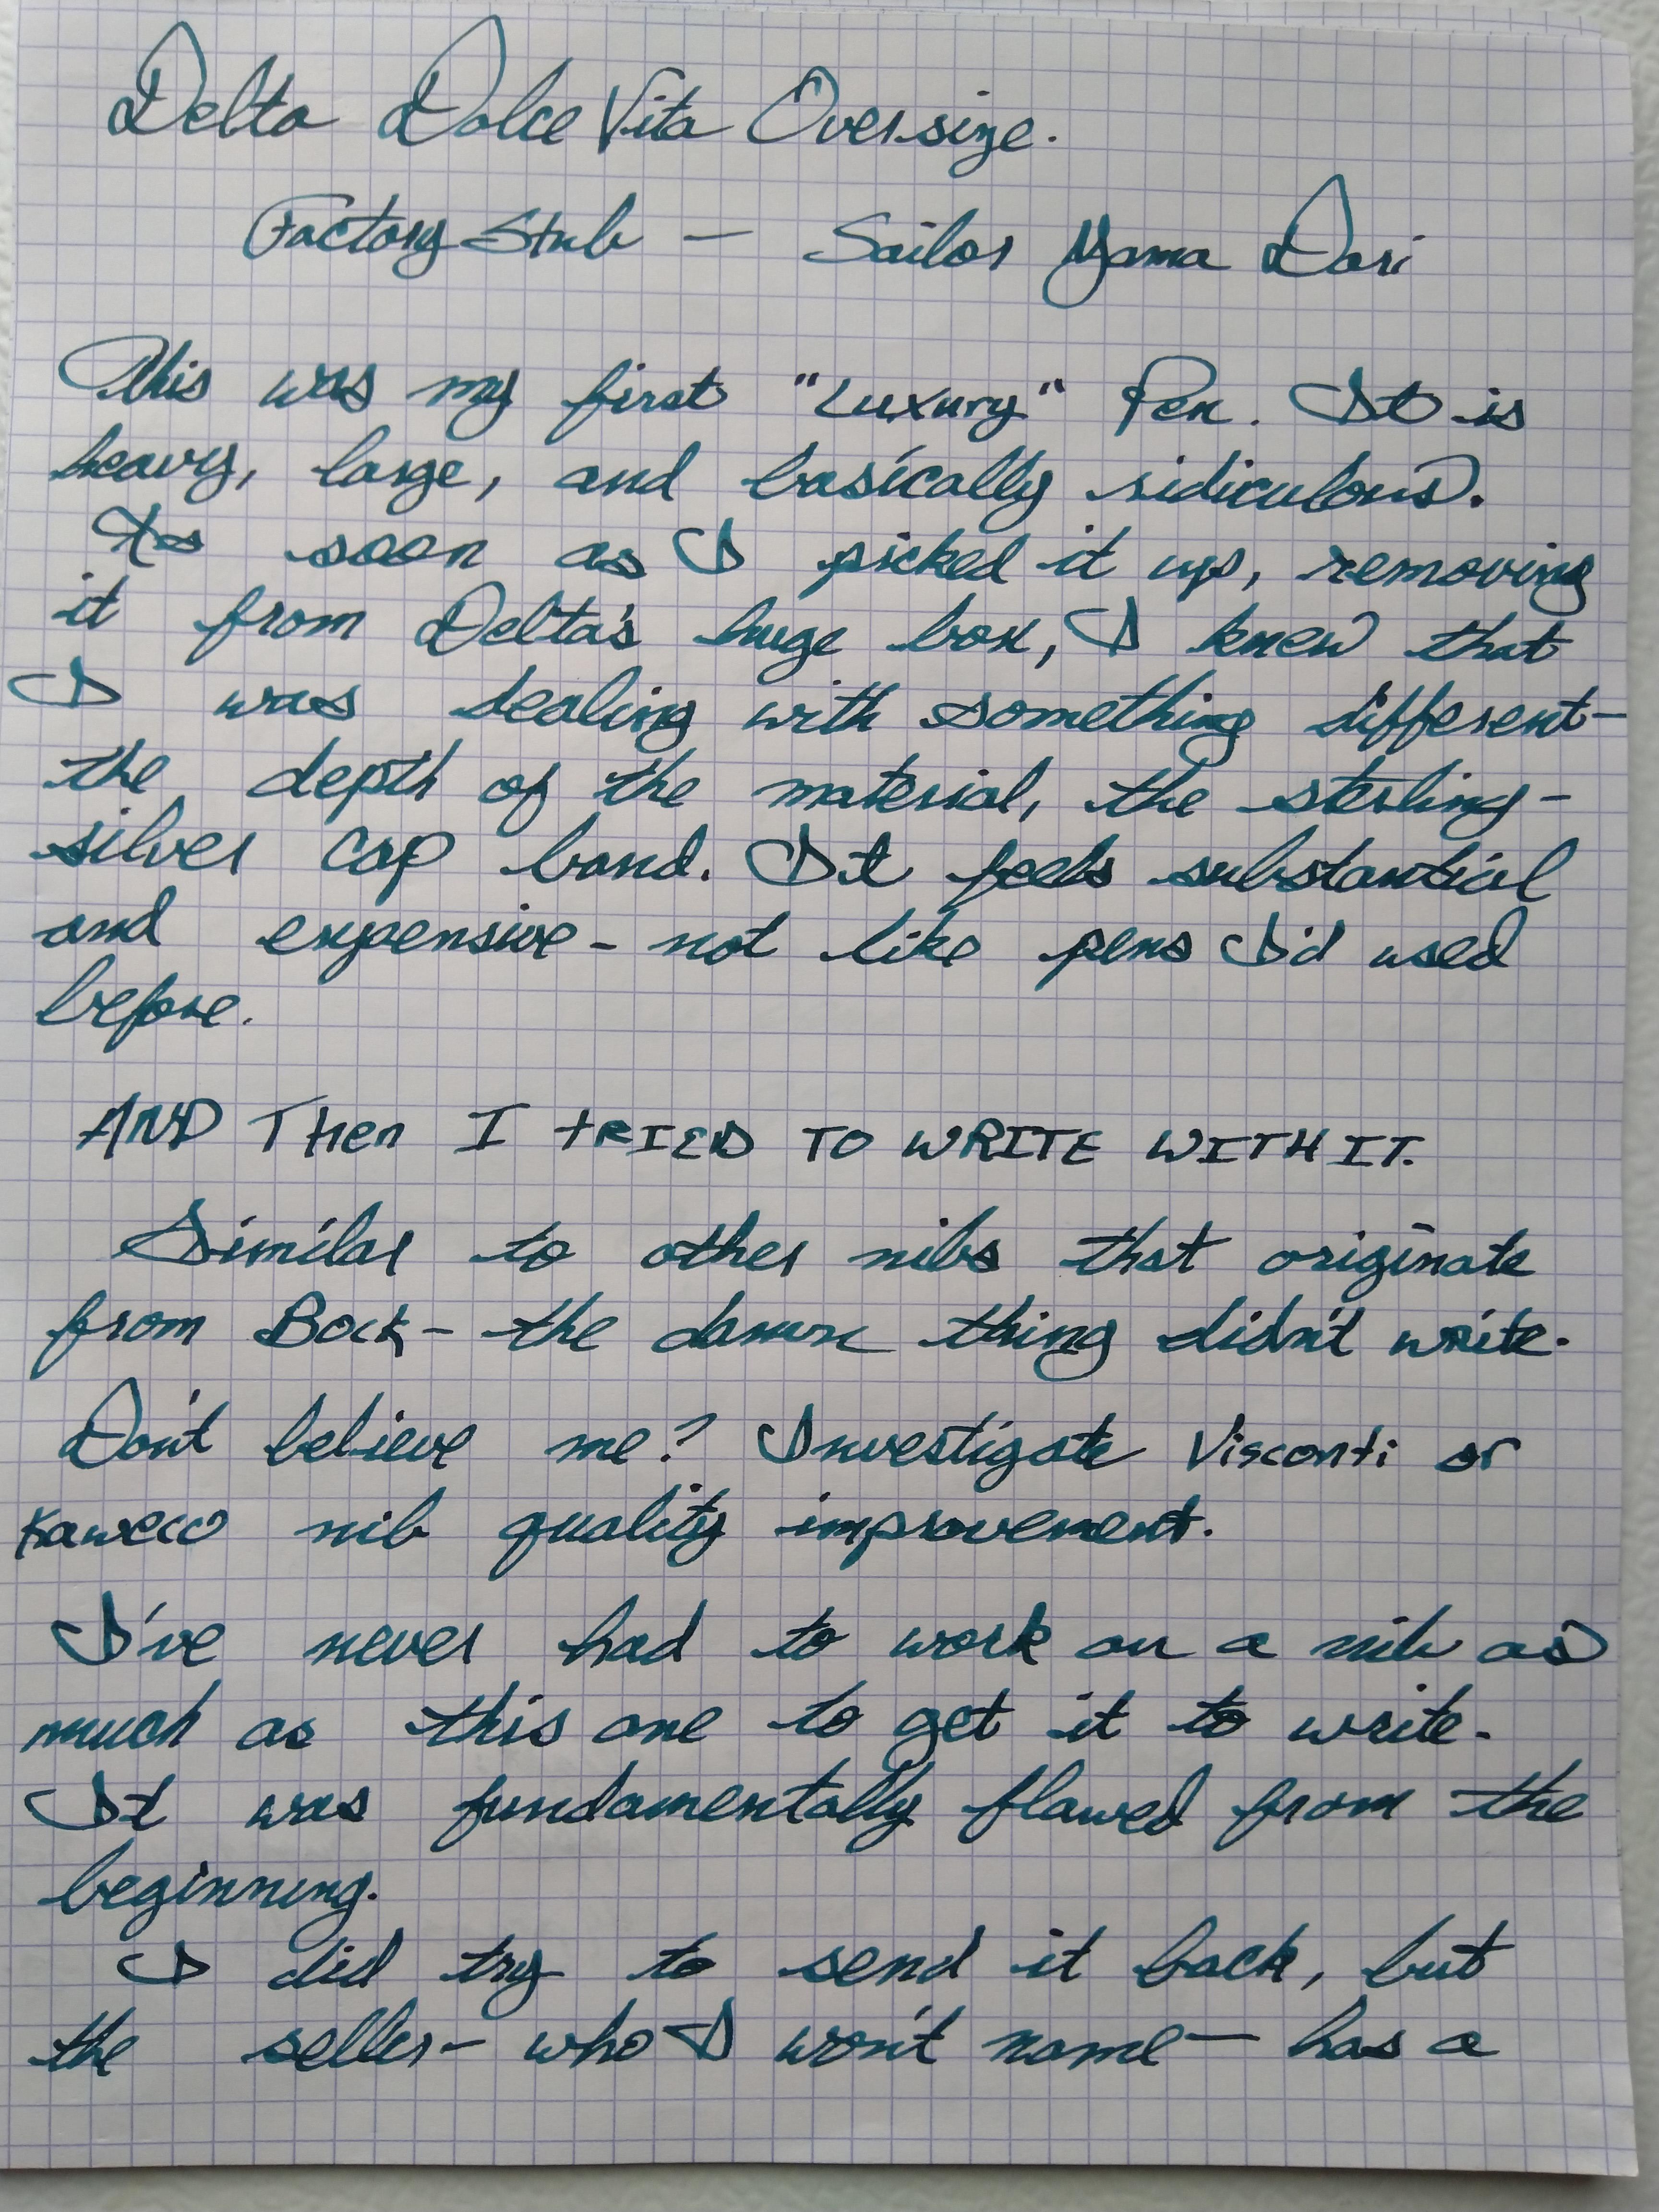 Delta Dolce Vita Oversize.
Factory Stub — Sailor Yama Dori
This was my first "Luxury" Pen. It is
heavy, large, and basically ridiculous.
As soon as I picked it up, removing
it from Delta's huge box, I knew that
I was dealing with something different—
the depth of the material, the sterling-
silver cap band. It feels substantial
and expensive - not like pens I'd used
before.
AND Then I tRIED TO WRITE WITH IT.
Similar to other nibs that originate
from Bock - the damn thing didn't write.
Don't believe me? Investigate Visconti or
Kaweco nib quality improvement.
I've never had to work on a nib as
much as this one to get it to write.
It was fundamentally flawed from the
beginning.
I did try to send it back, but
the seller - who I won't name — has a